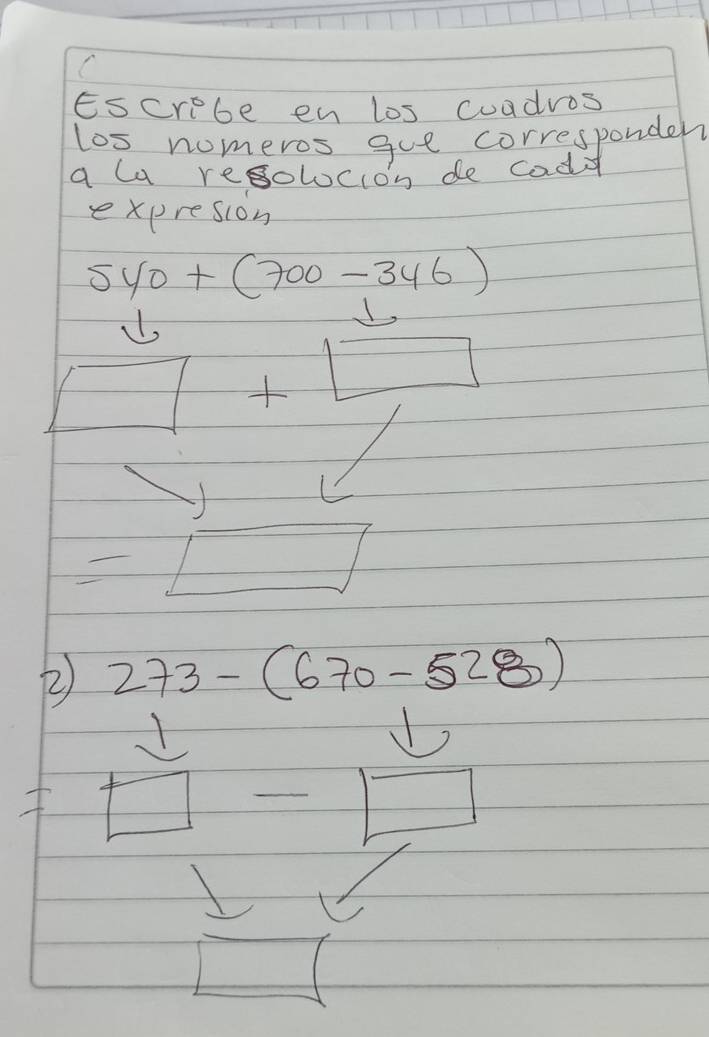 Escribe en los cuadros
los numeros que corresponden
a la resolución de cada
expresión
540 + (700 - 346)
+
=
2) 273 - (670 - 528)
= -